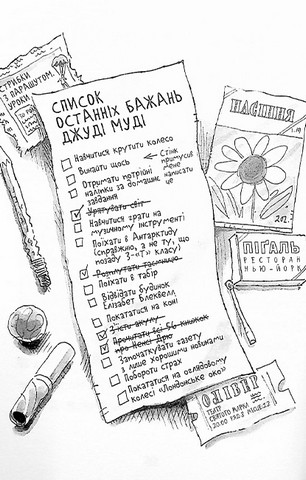 СТРИБКИ
З ПАРАШУТОМ.
УРОКИ
СПИСОК
ОСТАННІХ БАЖАНЬ
ДЖУДІ МУДІ
Навчитися крутити колесо
Винайти щось
← Стінк
примусив
мене
написати
це
Отримати потрійні
наліпки за домашнє
завдання
Врятувати світ
Навчитися грати на
музичному інструменті
Поїхати в Антарктиду
(справжню, а не ту, що
позаду 3-«Т» класу)
Розплутати таємницю
Поїхати в табір
Відвідати будинок
Елізабет Блеквелл
Покататися на коні
З'їсти акулу
Прочитати всі 56 книжок
про Ненсі Дрю
Започаткувати газету
з лише хорошими новинами
Побороти страх
Покататися на оглядовому
колесі «Лондонське око»
НАСІННЯ
ПІГАЛЬ
РЕСТОРАН
НЬЮ-ЙОРК
ОЛІВЕР
ТЕАТР
СВЯТОГО МАРКА
20:00